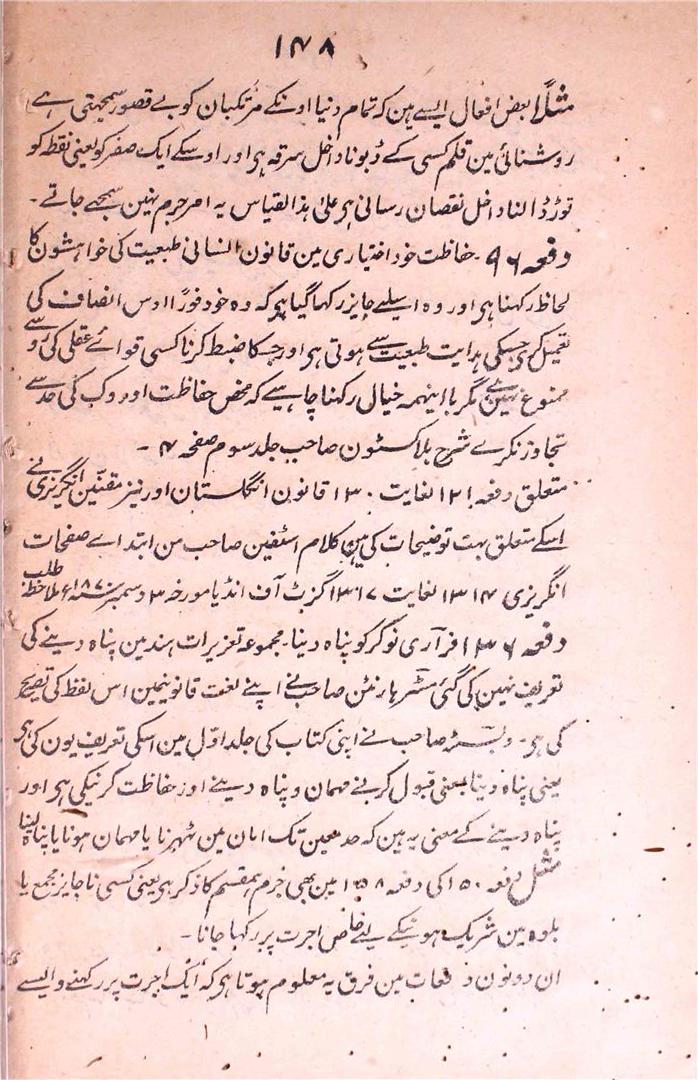 ۱۴۸
مثلاً بعض افعال ایسے ہین کہ تمام دنیا اونکے مرتکبان کو بے قصور سمجہتی ہے
روشنائی مین قلم کسی کے ڈبونا داخل سرقہ ہی اور اوسکے ایک صفر کو یعنی نقطہ کو
توڑ ڈالنا داخل نقصان رسانی ہی علیٰ ہذا القیاس یہ امر جرم نہین سمجہے جاتے۔
دفعہ ۹۶۔ حفاظت خود اختیاری مین قانون انسانی طبیعت کی خواہشون کا
لحاظ رکہتا ہی اور وہ اسیلیے جایز رکہا گیا ہی کہ وہ خود فوراً اوس انصاف کی
تعمیل کری جسکی ہدایت طبیعت سے ہوتی ہی اور جسکا ضبط کرنا کسی قوائے عقلی کی رو سے
ممنوع نہین ہے مگر با اینہمہ خیال رکہنا چاہیے کہ محض حفاظت اور روک کی حد سے
تجاوز نکرے شرح بلاکسٹون صاحب جلد سوم صفحہ ۴۔
متعلق دفعہ ۱۲۱ لغایت ۱۳۰ قانون انگلستان اور نیز مقننین انگریزی نے
اسکے متعلق بہت توضیحات کی ہین کلام اسٹفین صاحب من ابتداے صفحات
انگریزی ۱۳۱۴ لغایت ۱۳۱۷ گزٹ آف انڈیا مورخہ ۳ دسمبر سنہ ۱۸۷۰ء ملاحظہ طلب
دفعہ ۱۳۶ فرآری نوکر کو پناہ دینا۔ مجموعہ تعزیرات ہند مین پناہ دینے کی
تعریف نہین کی گئی مسٹر ہارٹن صاحب نے اپنے لغت قانونیمین اس لفظ کی تصریح
کی ہی۔ وبسٹر صاحب نے اپنی کتاب کی جلد اوّل مین اسکی تعریف یون کی ہی
یعنی پناہ دینا بمعنی قبول کرنے مہمان و پناہ دینے اور حفاظت کرنیکی ہی اور
پناہ دینے کے معنی یہ ہین کہ حد معین تک امان مین ٹہرنا یا مہمان ہونا یا پناہ لینا
مثل دفعہ ۱۵۰ کی دفعہ ۱۵۸ مین بھی جرم ہمقسم کا ذکر ہی یعنی کسی ناجایز مجمع یا
بلوہ مین شریک ہونیکے لیے خاص اجرت پر رکہا جانا۔
ان دونون دفعات مین فرق یہ معلوم ہوتا ہی کہ ایک اجرت پر رکہنے والیسے